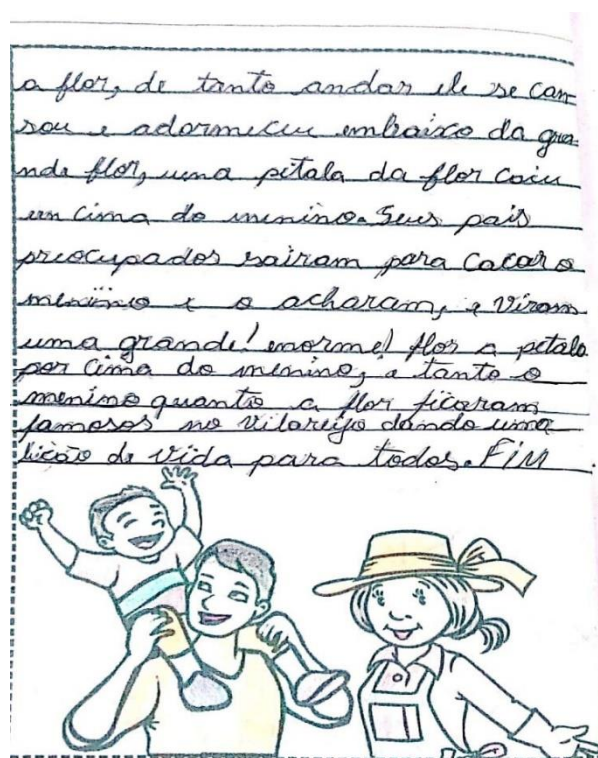 a flor, de tanto andar ele se can
sou e adormeceu embaixo da gra
nde flor, uma pétala da flor caiu
em cima do menino. Seus pais
preocupados sairam para cacar o
menino e o acharam, e viram
uma grande! enorme! flor a petala
por cima do menino, e tanto o
menino quanto a flor ficaram
famosos no vilareijo dando uma
lição de vida para todos. FiM.